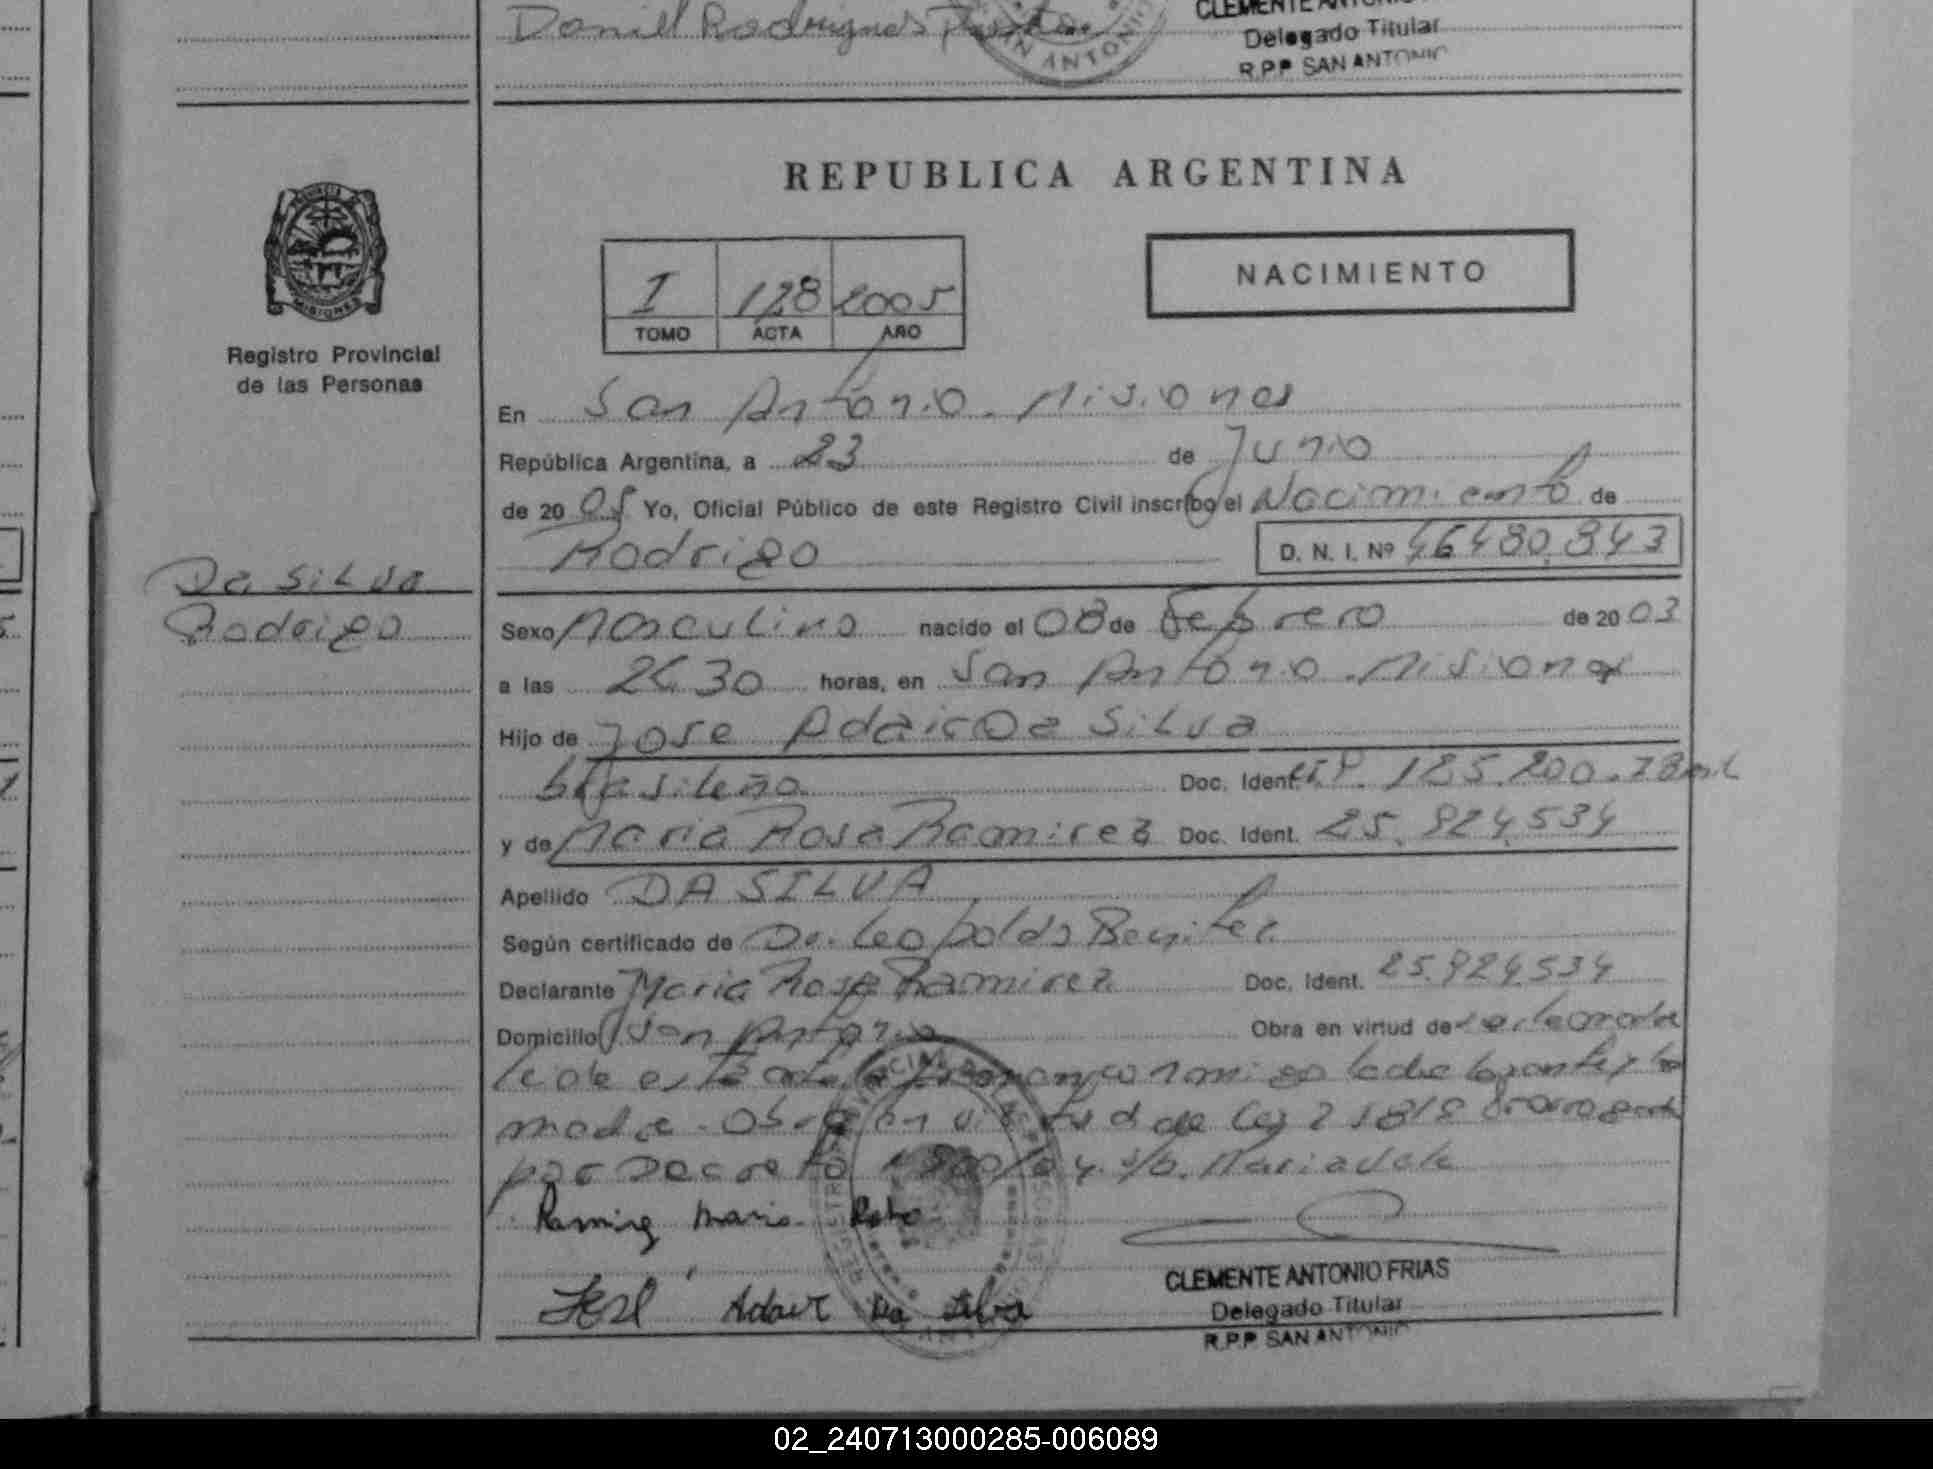 Daniel Rodrigues
SAN ANTONIO
CLEMENTE ANTONIO
Delegado Titular
R.P.P. SAN ANTONIO
PROVINCIA DE
MISIONES
Registro Provincial
de las Personas
Da SiLva
Rodrigo
REPUBLICA ARGENTINA
I 128 2005
TOMO ACTA AÑO
NACIMIENTO
En San Antonio. Misiones
República Argentina, a 23 de Junio
de 2005 Yo, Oficial Público de este Registro Civil inscribo el Nacimiento de
Rodrigo D. N. I. Nº 46480.843
Sexo Masculino nacido el 08 de Febrero de 2003
a las horas, en San Antonio. Misiones
Hijo de Jose Adair Da SiLva
brasileño Doc. Ident. 125.200.78
y de Maria Rosa Ramirez Doc. Ident. 25.924.534
Apellido DA SILVA
Según certificado de Dr. Leopoldo Benitez
Declarante Maria Rosa Ramirez Doc. Ident. 25.924534
Domicilio San Antonio Obra en virtud de
madre. Obra en virtud de Ley
por Decreto
Ramirez Maria Rosa
José Adair Da Silva
CLEMENTE ANTONIO FRIAS
Delegado Titular
R.P.P. SAN ANTONIO
02_240713000285-006089